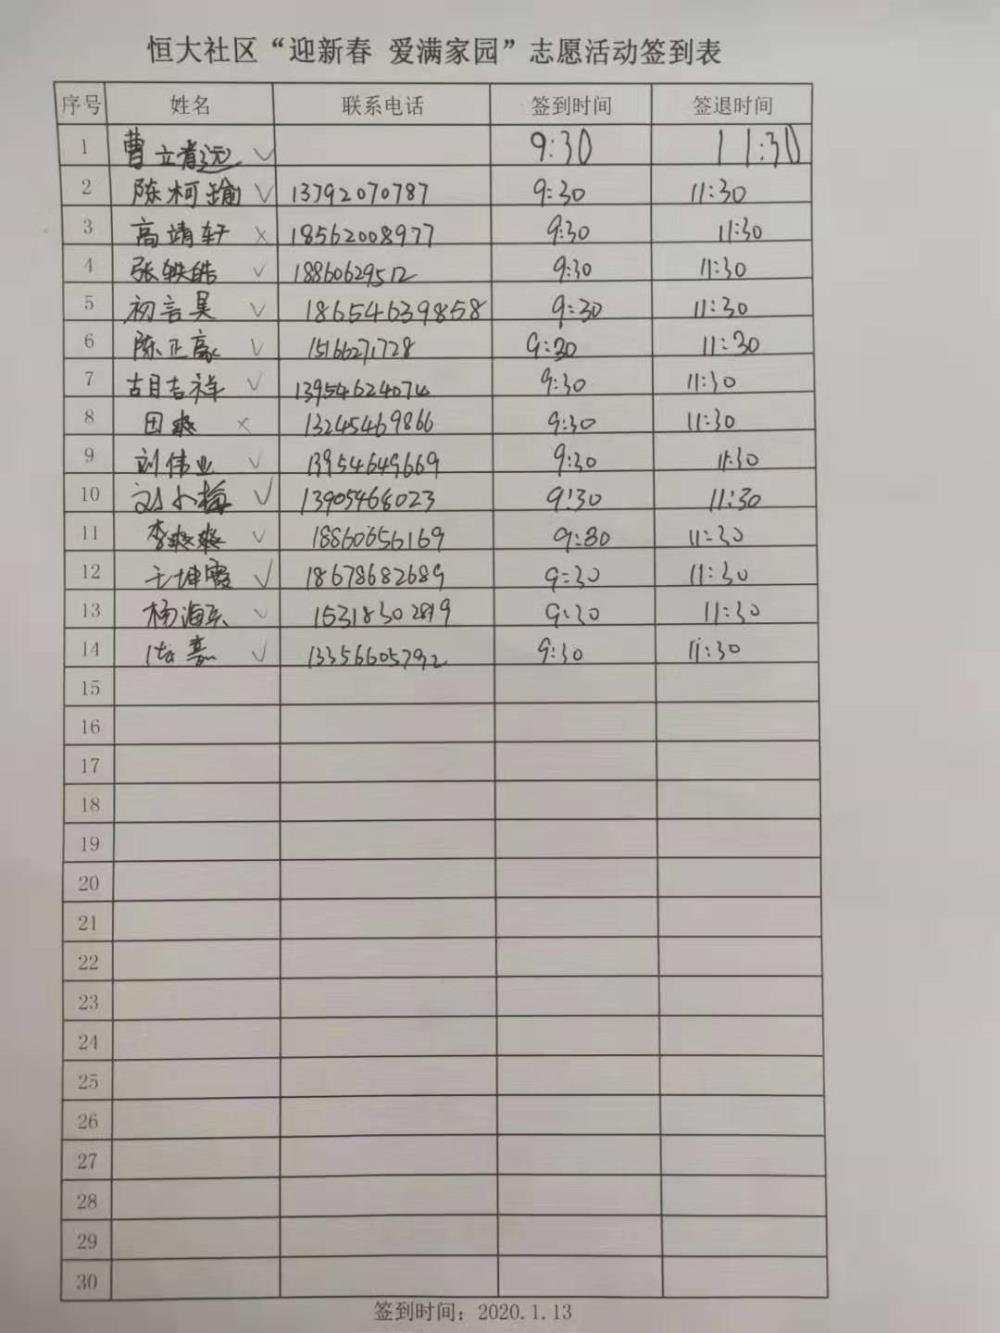 恒大社区“迎新春 爱满家园”志愿活动签到表
序号 姓名 联系电话 签到时间 签退时间
1 曹立 √ 9:30 11:30
2 陈柯瑜 √ 13792070787 9:30 11:30
3 高靖轩 × 18562008977 9:30 11:30
4 张轶皓 √ 18860629512 9:30 11:30
5 初言昊 √ 18654639858 9:30 11:30
6 陈正豪 √ 15166271728 9:30 11:30
7 胡吉祥 √ 13954624074 9:30 11:30
8 田爽 × 13245469866 9:30 11:30
9 刘伟业 √ 13954649669 9:30 11:30
10 刘小梅 √ 13905468023 9:30 11:30
11 李爽爽 √ 18860656169 9:30 11:30
12 王坤霞 √ 18678682689 9:30 11:30
13 杨海东 √ 15318302819 9:30 11:30
14 √ 13356605792 9:30 11:30
15
16
17
18
19
20
21
22
23
24
25
26
27
28
29
30
签到时间：2020.1.13